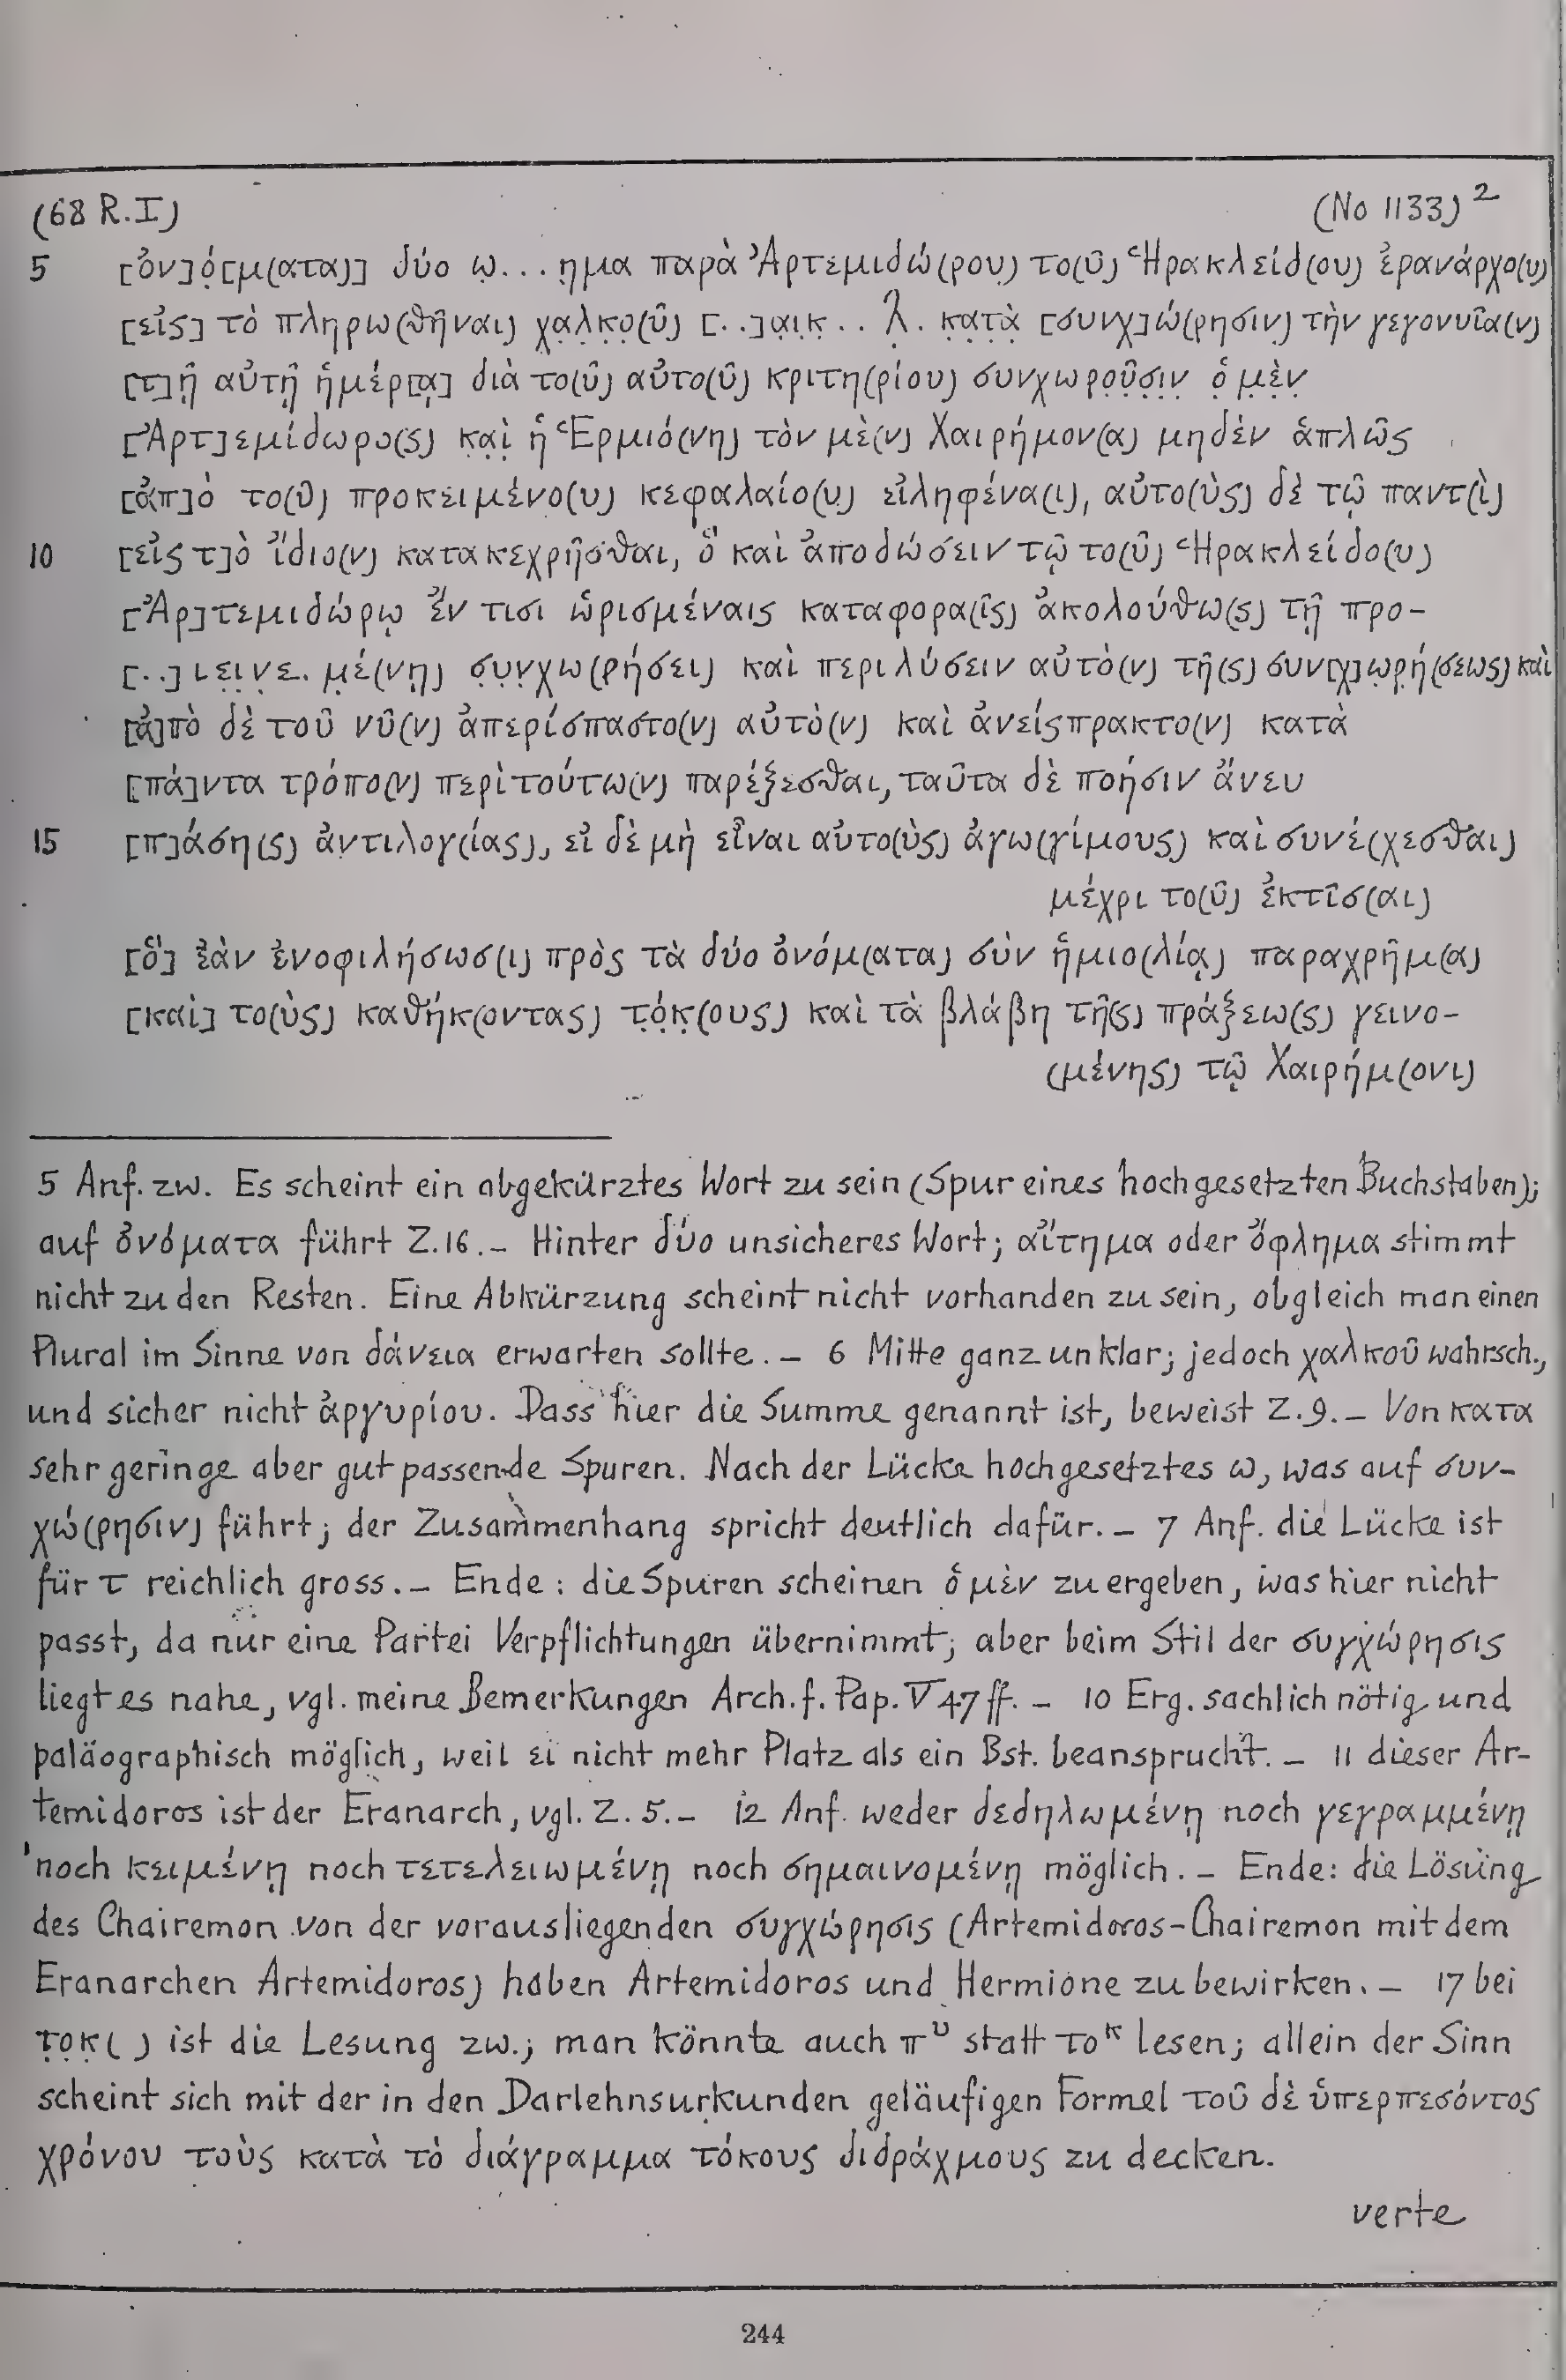 (68 R.I) (No 1133)²
5 [ὀν]ό̣[μ(ατα)] δύο ω̣...ημα παρὰ Ἀρτεμιδώ(ρου) το(ῦ) Ἡρακλείδ(ου) ἐρανάρχο(υ)
[εἰς] τὸ πληρω(θῆναι) χ̣α̣λ̣κ̣ο̣(ῦ) [..]α̣ι̣κ̣.. λ̣. κ̣α̣τ̣ὰ̣ [συνχ]ώ(ρησιν) τὴν γεγονυῖα(ν)
[τ]ῇ αὐτῇ ἡμέρ[ᾳ] διὰ το(ῦ) αὐτο(ῦ) κριτη(ρίου) συνχωρο̣ῦ̣σ̣ι̣ν̣ ὁ̣ μ̣ὲ̣ν̣
[Ἀρτ]εμίδωρο(ς) κ̣α̣ὶ̣ ἡ Ἑρμιό(νη) τὸν μὲ(ν) Χαιρήμον(α) μηδὲν ἁπλῶς
[ἀπ]ὸ το(ῦ) προκειμένο(υ) κεφαλαίο(υ) εἰληφένα(ι), αὐτο(ὺς) δὲ τῷ παντ(ὶ)
10 [εἰς τ]ὸ ἴδιο(ν) κατακεχρῆσθαι, ὃ καὶ ἀποδώσειν τῷ το(ῦ) Ἡρακλείδο(υ)
[Ἀρ]τεμιδώρῳ ἔν τισι ὡρισμέναις καταφορα(ῖς) ἀκολούθω(ς) τῇ προ-
[..]ιε̣ι̣ν̣ε̣. μ̣έ(νῃ) σ̣υ̣ν̣χω(ρήσει) καὶ περιλύσειν αὐτὸ(ν) τῆ(ς) συν[χ]ω̣ρ̣ή(σεως) καὶ
[ἀ]πὸ δὲ τοῦ νῦ(ν) ἀπερίσπαστο(ν) αὐτὸ(ν) καὶ ἀνείσπρακτο(ν) κατὰ
[πά]ντα τρόπο(ν) περὶ τούτω(ν) παρέξεσθαι, ταῦτα δὲ ποήσιν ἄνευ
15 [π]άση(ς) ἀντιλογ(ίας), εἰ δὲ μὴ εἶναι αὐτο(ὺς) ἀγω(γίμους) καὶ συνέ(χεσθαι)
μέχρι το(ῦ) ἐκτῖσ(αι)
[ὃ] ἐὰν ἐνοφιλήσωσ(ι) πρὸς τὰ δύο ὀνόμ(ατα) σὺν ἡμιο(λίᾳ) παραχρῆμ(α)
[καὶ] το(ὺς) καθήκ(οντας) τ̣ό̣κ̣(ους) καὶ τὰ βλάβη τῆ(ς) πράξεω(ς) γεινο-
(μένης) τῷ Χαιρήμ(ονι)
5 Anf. zw. Es scheint ein abgekürztes Wort zu sein (Spur eines hochgesetzten Buchstaben);
auf ὀνόματα führt Z.16. – Hinter δύο unsicheres Wort; αἴτημα oder ὄφλημα stimmt
nicht zu den Resten. Eine Abkürzung scheint nicht vorhanden zu sein, obgleich man einen
Plural im Sinne von δάνεια erwarten sollte. – 6 Mitte ganz unklar; jedoch χαλκοῦ wahrsch.,
und sicher nicht ἀργυρίου. Dass hier die Summe genannt ist, beweist Z.9. – Von κατα
sehr geringe aber gut passende Spuren. Nach der Lücke hochgesetztes ω, was auf συν-
χώ(ρησιν) führt; der Zusammenhang spricht deutlich dafür. – 7 Anf. die Lücke ist
für τ reichlich gross. – Ende: die Spuren scheinen ὁ μὲν zu ergeben, was hier nicht
passt, da nur eine Partei Verpflichtungen übernimmt; aber beim Stil der συγχώρησις
liegt es nahe, vgl. meine Bemerkungen Arch. f. Pap. V 47 ff. – 10 Erg. sachlich nötig und
paläographisch möglich, weil ει nicht mehr Platz als ein Bst. beansprucht. – 11 dieser Ar-
temidoros ist der Eranarch, vgl. Z. 5. – 12 Anf. weder δεδηλωμένῃ noch γεγραμμένῃ
noch κειμένῃ noch τετελειωμένῃ noch σημαινομένῃ möglich. – Ende: die Lösung
des Chairemon von der vorausliegenden συγχώρησις (Artemidoros-Chairemon mit dem
Eranarchen Artemidoros) haben Artemidoros und Hermione zu bewirken. – 17 bei
τ̣ο̣κ̣( ) ist die Lesung zw.; man könnte auch πᵁ statt τοᴷ lesen; allein der Sinn
scheint sich mit der in den Darlehnsurkunden geläufigen Formel τοῦ δὲ ὑπερπεσόντος
χρόνου τοὺς κατὰ τὸ διάγραμμα τόκους διδράχμους zu decken.
verte
244